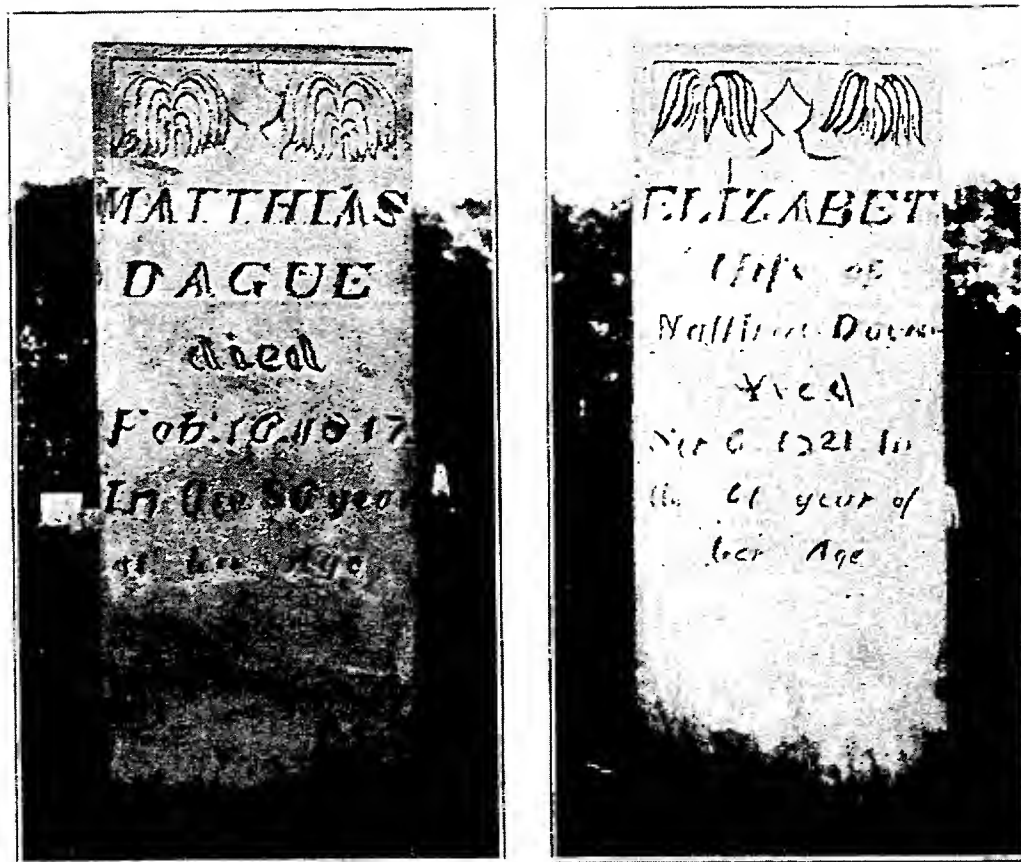 MATTHIAS
DAGUE
died
Feb. 16 1847
In the 80 year
of his Age
ELIZABET
Wife of
died
6 1821 In
the 61 year of
her Age